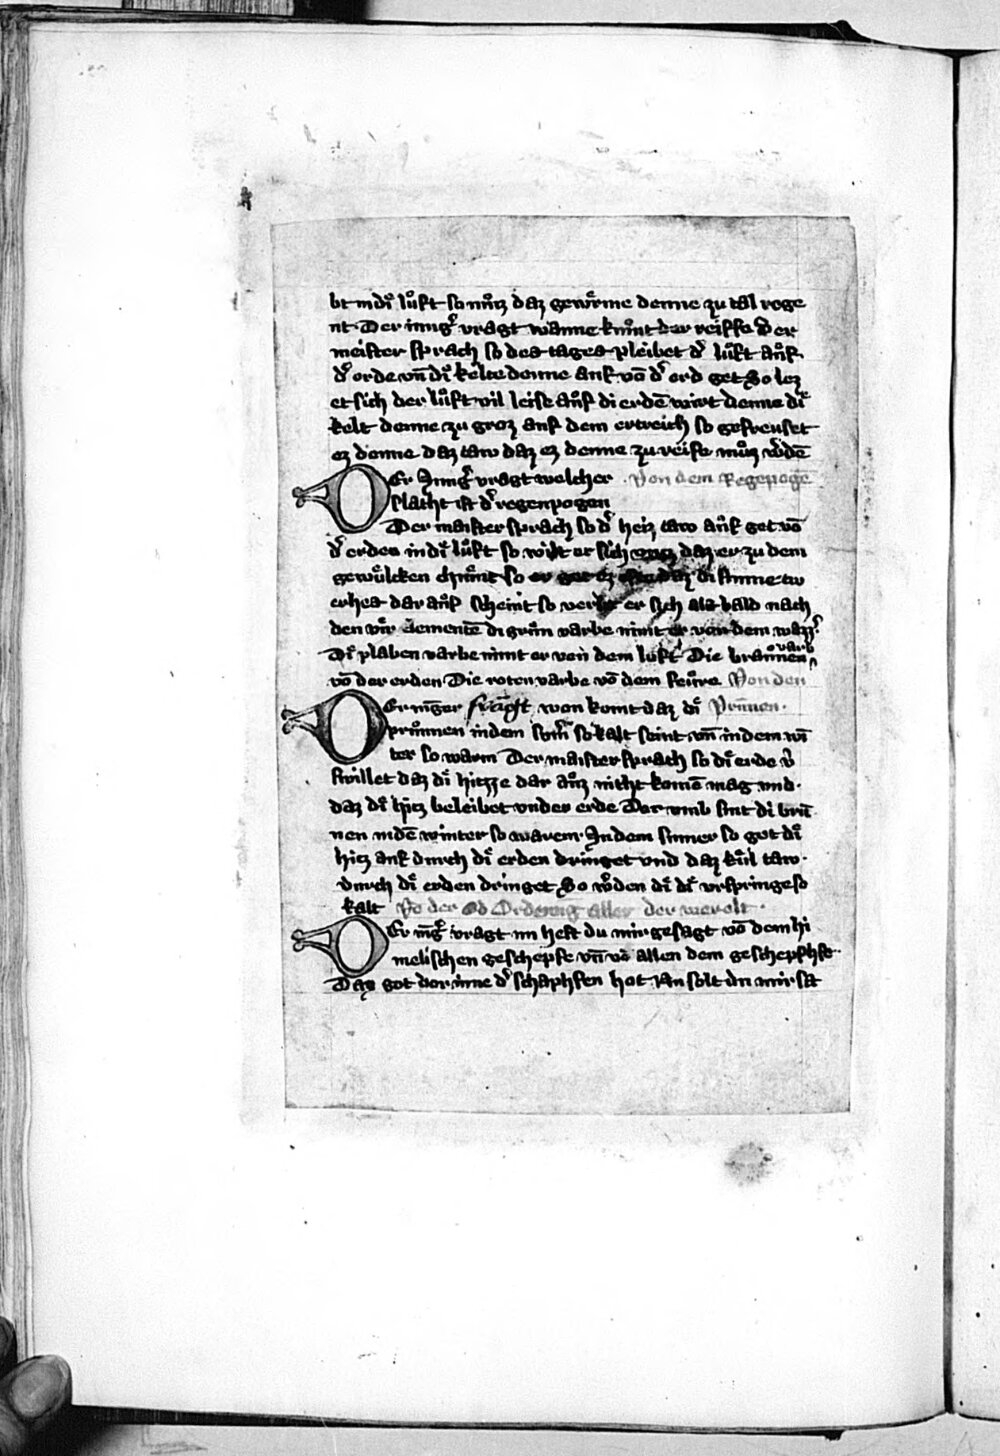 bt in di luͦft so muͦz daz gewuͤrme denne zu tal rege
nt. Der iung͛ vragt wanne kuͦmt der reiffe Der
meister sprach so des tages pleibet d͛ luͦft auͦf
d͛ erde vn̄ di kelte denne auf vō d͛ erd get So lez
et sich der luͦft vil leise auͦf di erdē wirt denne di
kelt denne zu groz auf dem ertreich so gefreuset
ez denne daz taw daz ez denne zu reife muͦz w͛dē
DEr Jung͛ vragt welcher Von dem Regepogē
slacht ist d͛ regenpogen
Der maister sprach so d͛ heiz taw auͦf get vō
d͛ erden in di luͦft so wiht er sich daz er zu dem
gewuͤlcken chuͤmt so er di sunne
erhes dar auͦf scheint so er sich als bald nach
den vir elementē di gruͤn varbe nimt er von dem wazz͛
Di plaben varbe nimt er von dem luft Die braunen varb
vō der erden Die roten varbe vō dem feuͤre Von den
DEr iūger fragt won komt daz di Pruͤnen.
pruͦnnen in dem sum͛ so kalt seint vn̄ in dem wī
ter so warm Der maister sprach so di erde v͛
swillet daz di hitzze dar auͦz nicht komē mag vnd.
daz di hitz beleibet vnder erde Dar vmb sint di brun̄
nen in dē winter so warem. In dem sumer so get di
hitz auf durch di erden dringet vnd daz kuͤl taw.
durch di erden dringet So w͛den di di vrspringe so
kalt Vō der od Ordenung aller der werelt.
DEr iūg͛ vragt nu hest du mir gesagt vō dem hi
melischen geschepfe vn̄ vō allen dem geschepfhfe
Daz got dor inne d͛ schaphfen hot Nu solt du mir sa